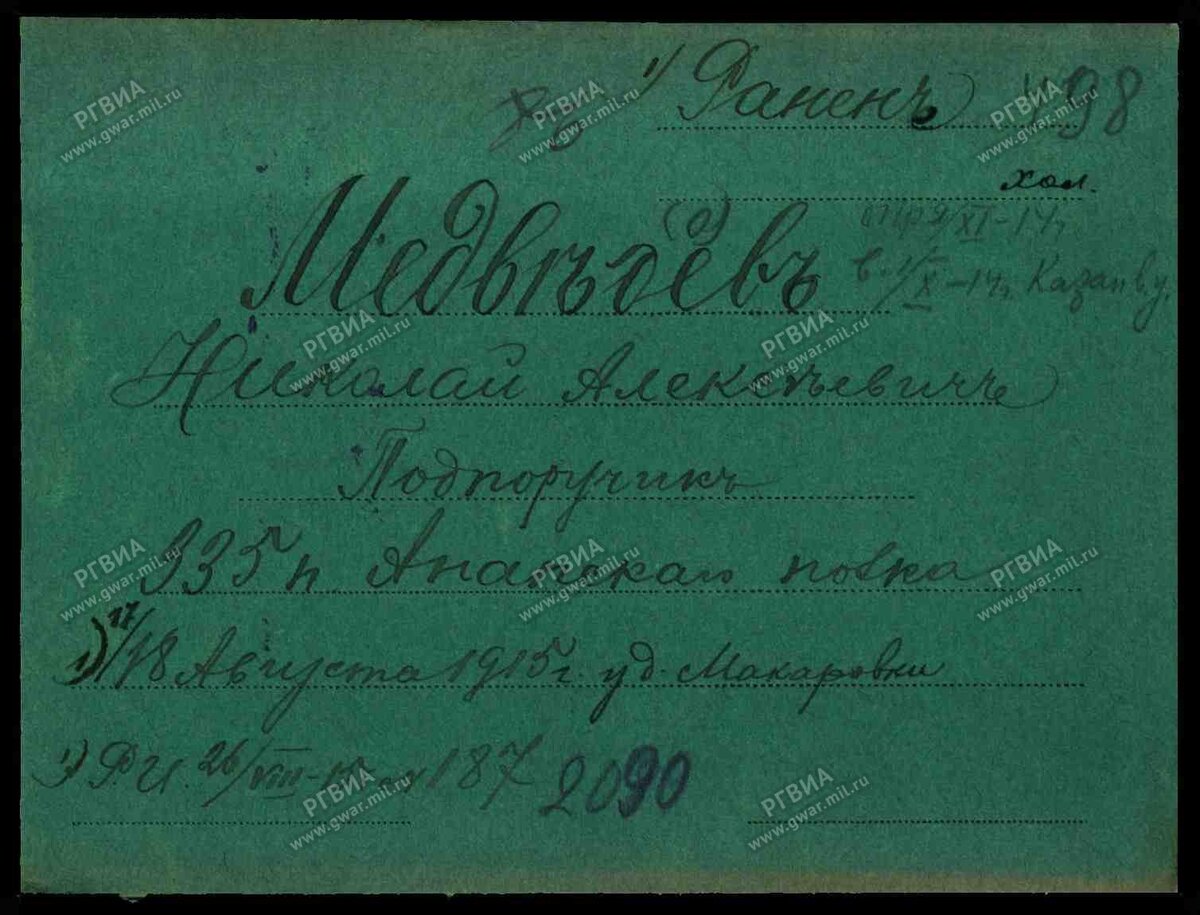 1) Раненъ 498
хол.
Медвѣдевъ (о)
в. 1/X-14г. Казан в.у.
Николай Алексѣевичъ
Подпоручикъ
335 п. Анапскаго полка
1) 17/18 Августа 1915г. у д. Макаровки
1) Р.И. 26/VIII-15 187 2090
РГВИА
www.gwar.mil.ru
РГВИА
www.gwar.mil.ru
РГВИА
www.gwar.mil.ru
РГВИА
www.gwar.mil.ru
РГВИА
www.gwar.mil.ru
РГВИА
www.gwar.mil.ru
РГВИА
www.gwar.mil.ru
РГВИА
www.gwar.mil.ru
РГВИА
www.gwar.mil.ru
РГВИА
www.gwar.mil.ru